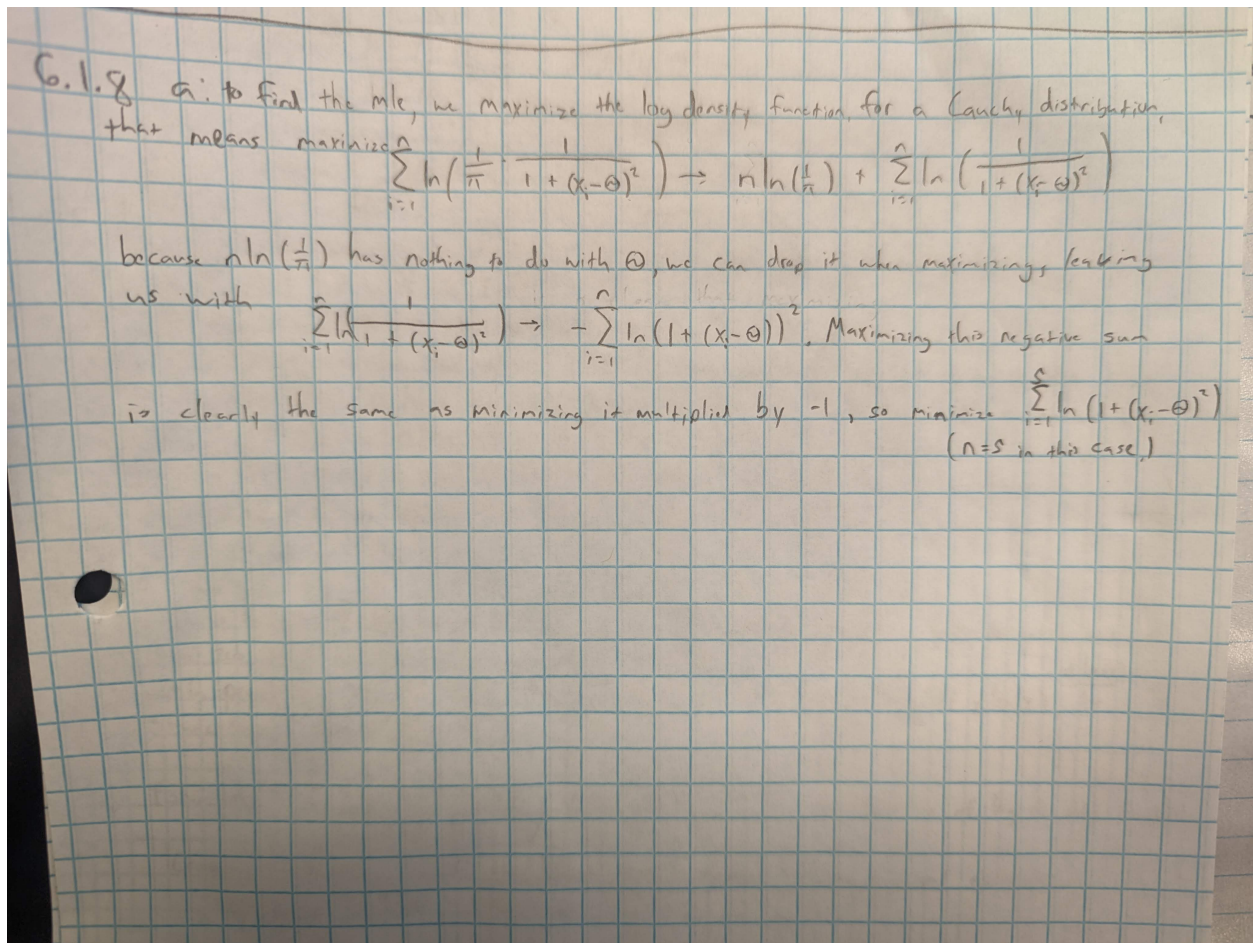 6.1.8 a: to find the mle, we maximize the log density function, for a Cauchy distribution,
that means maximize \sum_{i=1}^{n} ln(\frac{1}{\pi} \cdot \frac{1}{1 + (x_i - Θ)^2}) → n ln(\frac{1}{\pi}) + \sum_{i=1}^{n} ln(\frac{1}{1 + (x_i - Θ)^2})
because n ln(\frac{1}{\pi}) has nothing to do with Θ, we can drop it when maximizing, leaving
us with \sum_{i=1}^{n} ln(\frac{1}{1 + (x_i - Θ)^2}) → -\sum_{i=1}^{n} ln(1 + (x_i - Θ))^2. Maximizing this negative sum
is clearly the same as minimizing it multiplied by -1, so minimize \sum_{i=1}^{5} ln(1 + (x_i - Θ)^2)
(n=5 in this case)